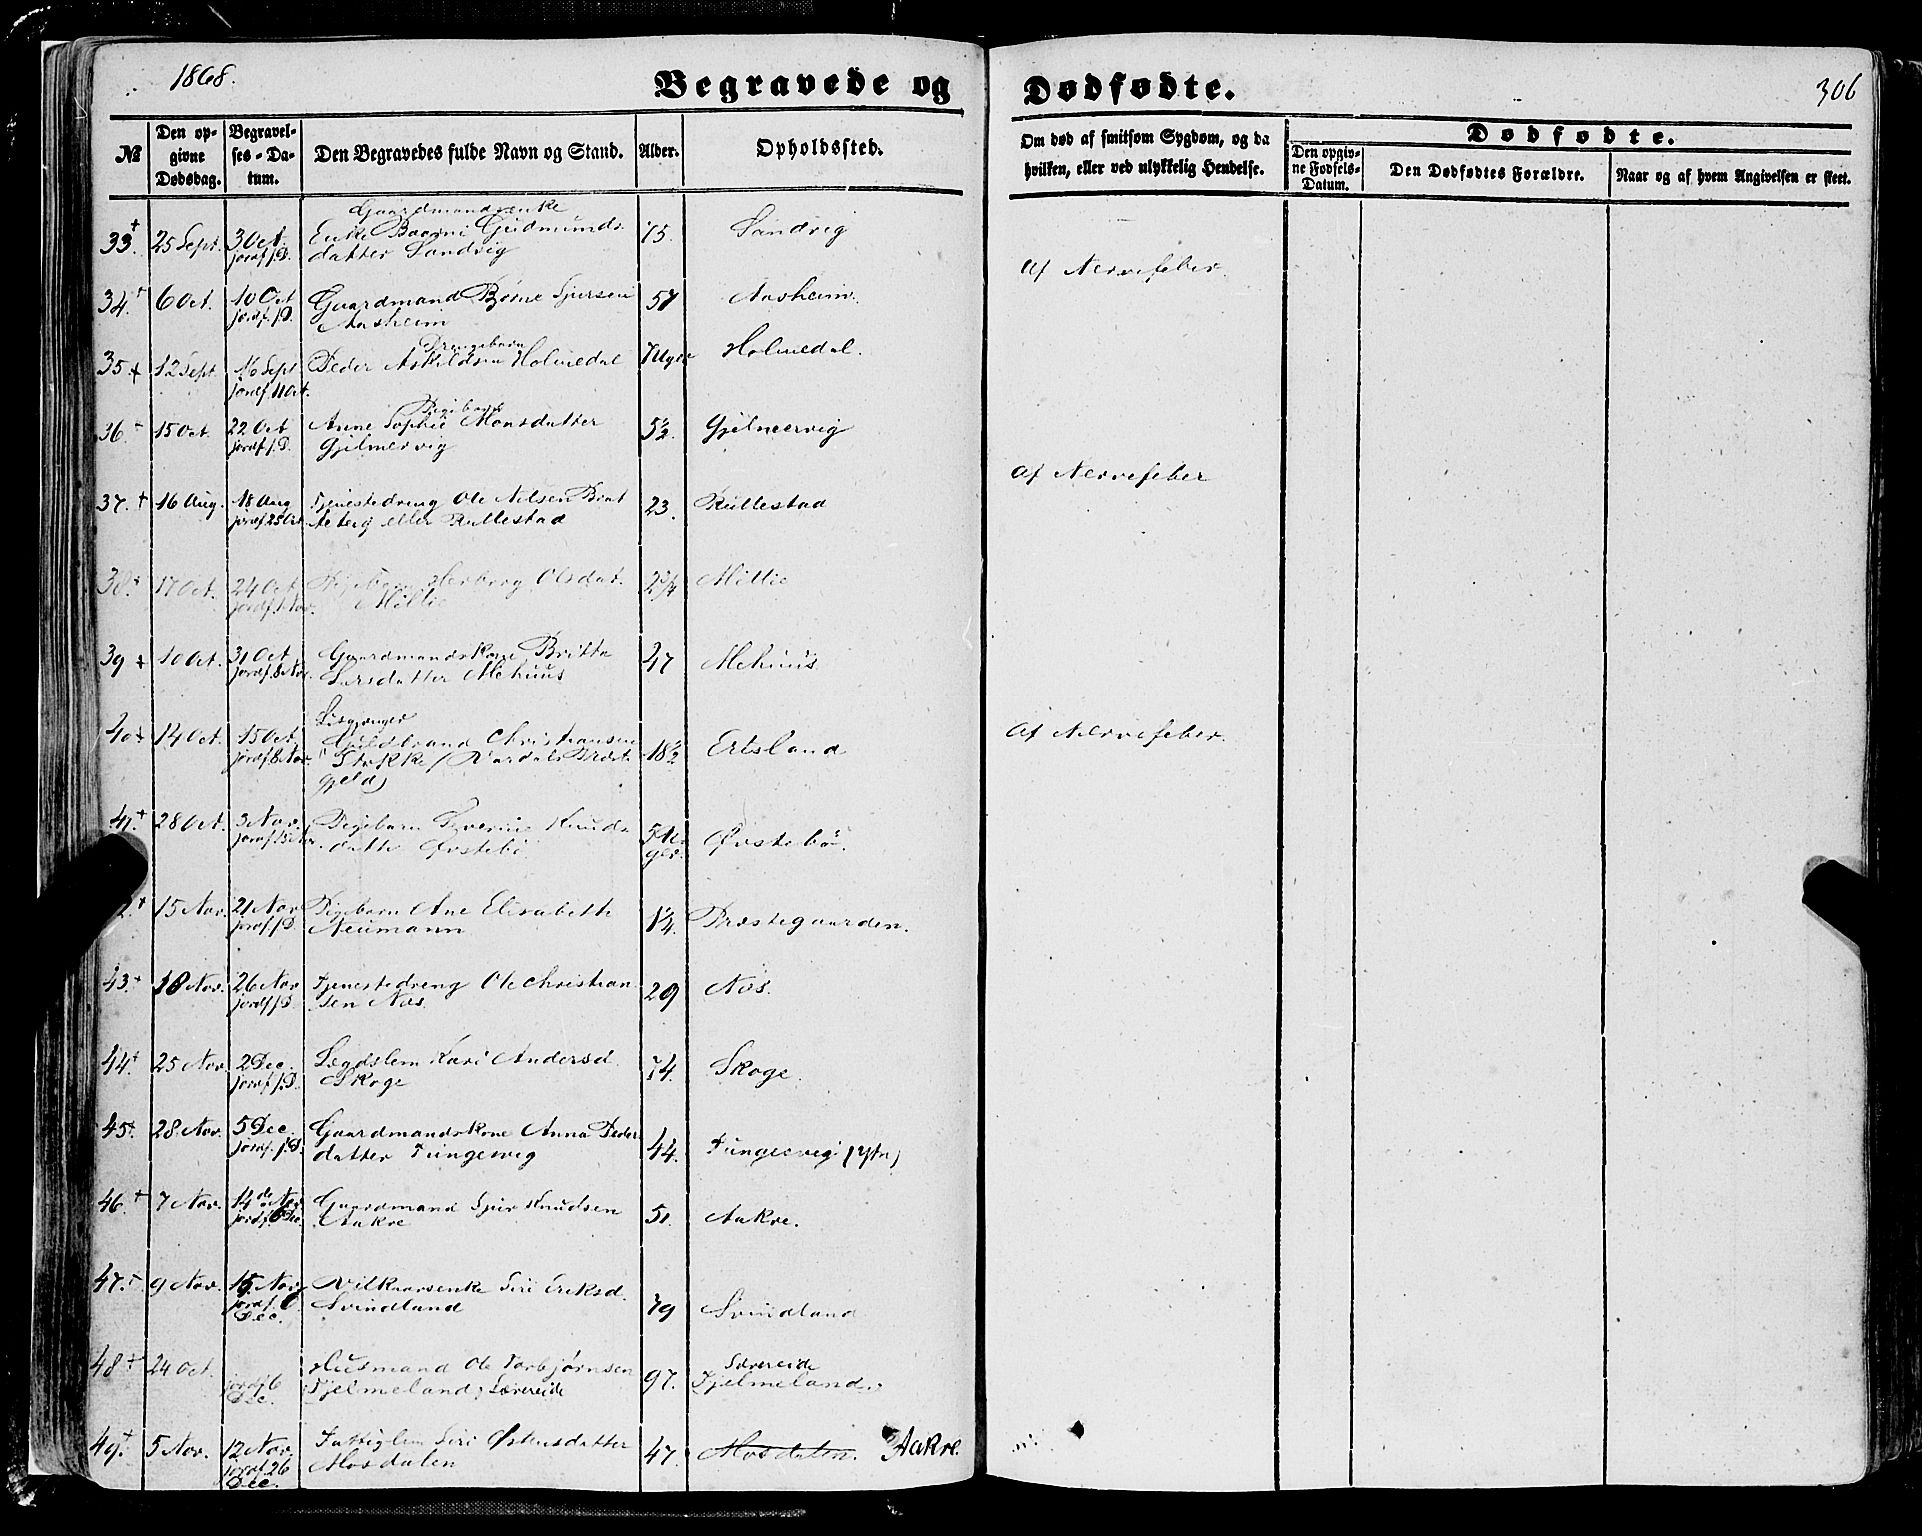 1868.
Begravede og Dødfødte.
306
№
Den opgivne Dødsdag.
Begravelses-Datum.
Den Begravedes fulde Navn og Stand.
Alder.
Opholdssted.
Om død af smitsom Sygdom, og da hvilken, eller ved ulykkelig Hendelse.
Dødfødte.
Den opgivne Fødsels-Datum.
Den Dødfødtes Forældre.
Naar og af hvem Angivelsen er skeet.
Gaardmandsenke
33. 25 Sept. 3 Oct. Enke Gudmunds- 75. Sandvig
jordf. s. D. datter Sandvig
af Nervefeber.
34. 6 Oct. 10 Oct Gaardmand Børne Sjursen 57 Aasheim.
jordf. s. D. Aasheim
Drengebarn
35 12 Sept. 16 Sept Peder Askildsen Holmedal 7 Uger Holmedal.
jordf. 11 Oct.
Pigebarn
36. 15 Oct. 22 Oct Anne Sophie Monsdatter 5½. Gjelmervig
jordf. s. D. Gjelmervig
af Nervefeber
37. 16 Aug. 18 Aug Tjenestedreng Ole Nilsen 23. Rullestad
jordf. 25 Oct. eller Rullestad
38. 17 Oct. 24 Oct Pigebarn Herborg Olsdat. 2¾ Millie
jordf. 1 Nov. Millie
39 10 Oct. 31 Oct. Gaardmandskone Britta 47 Mehuus
jordf. 8 Nov. Larsdatter Mehuus
Løsgjænger
40 14 Oct. 15 Oct. Guldbrand Christiansen 18½ Ertsland
jordf. 8 Nov. Stokke (Aardals Præste-
gjeld)
Af Nervefeber.
41. 28 Oct. 3 Nov. Pigebarn Severine Knuds- 5 U- Øvstebø.
jordf. datter Øvstebø ger.
42. 15 Nov. 21 Nov Pigebarn Ane Elisabeth 1½. Præstegaarden.
jordf. s. D. Neumann
43. 18 Nov. 26 Nov Tjenestedreng Ole Christian- 29 Næs.
jordf. s. D. sen Næs.
44. 25 Nov. 2 Dec. Lægdslem Kari Andersd. 74. Skoge.
jordf. s. D. Skoge
45. 28 Nov. 5 Dec. Gaardmandskone Anna Peder- 44. Tungesvig (Ytr.)
jordf. s. D. datter Tungesvig
46. 7 Nov. 14de Nov Gaardmand Sjur Knudsen 51. Aakre.
jordf. 6 Dec. Aakre
47. 9 Nov. 15 Nov Vilkaarsenke Siri Eriksd. 79 Svindland
jordf. 6 Svindland
Dec.
48 24 Oct. Husmand Ole Torbjørnsen 97. Særereide
jordf. 6 Fjelmeland, Særereide Fjelmeland.
Dec.
49. 5 Nov. 12 Nov. Fattiglem Siri Østensdatter 47. Mosdalen. Aakre.
jordf. 26 Mosdalen
Dec.